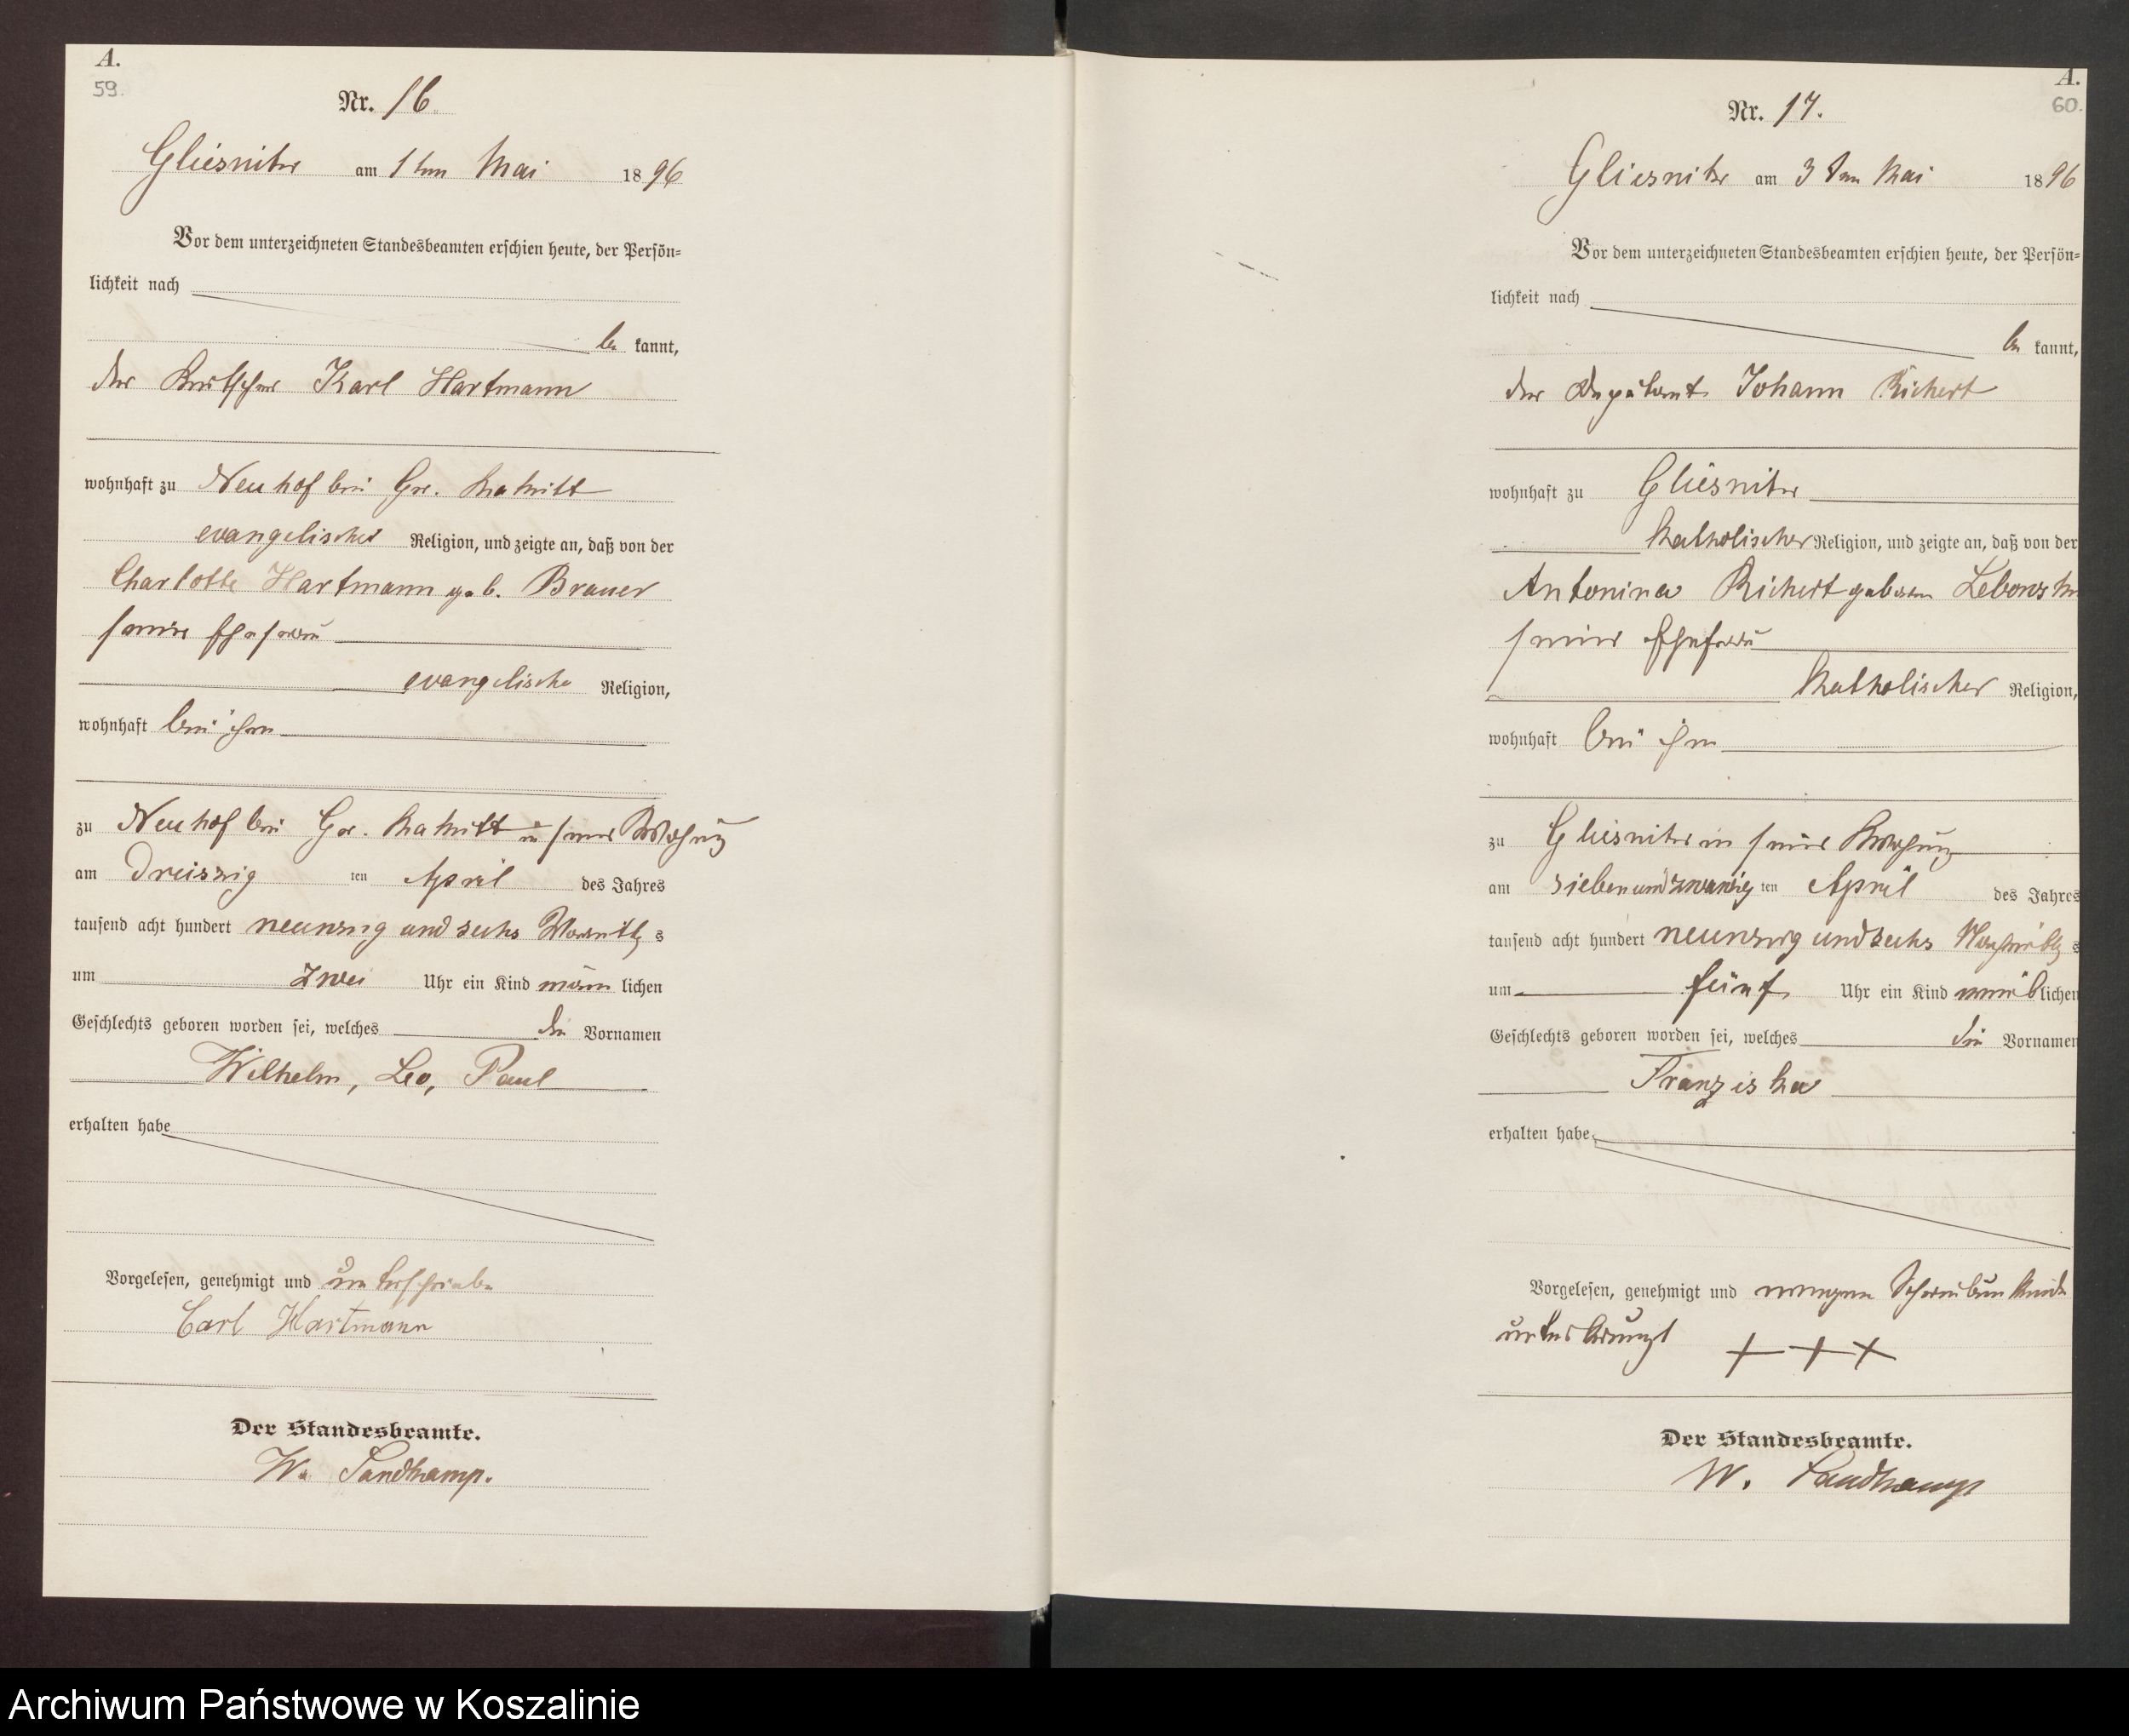 A.
59.
Nr. 16.
Gliesnitz am 1ten Mai 1896
Vor dem unterzeichneten Standesbeamten erschien heute, der Persön=
lichkeit nach
be kannt,
der Kutscher Karl Hartmann
wohnhaft zu Neuhof bei Gr.
evangelischer Religion, und zeigte an, daß von der
Charlotte Hartmann geb. Brauer
seiner Ehefrau
evangelischer Religion,
wohnhaft bei ihm
zu Neuhof bei Gr. in seiner Wohnung
am Dreiszig ten April des Jahres
tausend acht hundert neunzig und sechs Vormittags
um zwei Uhr ein Kind männ lichen
Geschlechts geboren worden sei, welches die Vornamen
Wilhelm, Leo, Paul
erhalten habe
Vorgelesen, genehmigt und unterschrieben
Carl Hartmann
Der Standesbeamte.
W. Sandkamp.
A.
60.
Nr. 17.
Gliesnitz am 3ten Mai 1896
Vor dem unterzeichneten Standesbeamten erschien heute, der Persön=
lichkeit nach
be kannt,
der Deputant Johann Richert
wohnhaft zu Gliesnitz
katholischer Religion, und zeigte an, daß von der
Antonina Richert geboren
seiner Ehefrau
katholischer Religion,
wohnhaft bei ihm
zu Gliesnitz in seiner Wohnung
am siebenundzwanzig ten April des Jahres
tausend acht hundert neunzig und sechs Nachmittags
um fünf Uhr ein Kind weib lichen
Geschlechts geboren worden sei, welches die Vornamen
Franziska
erhalten habe
Vorgelesen, genehmigt und wegen Schreibunkunde
unterkreuzt + + +
Der Standesbeamte.
W. Sandkamp
Archiwum Państwowe w Koszalinie